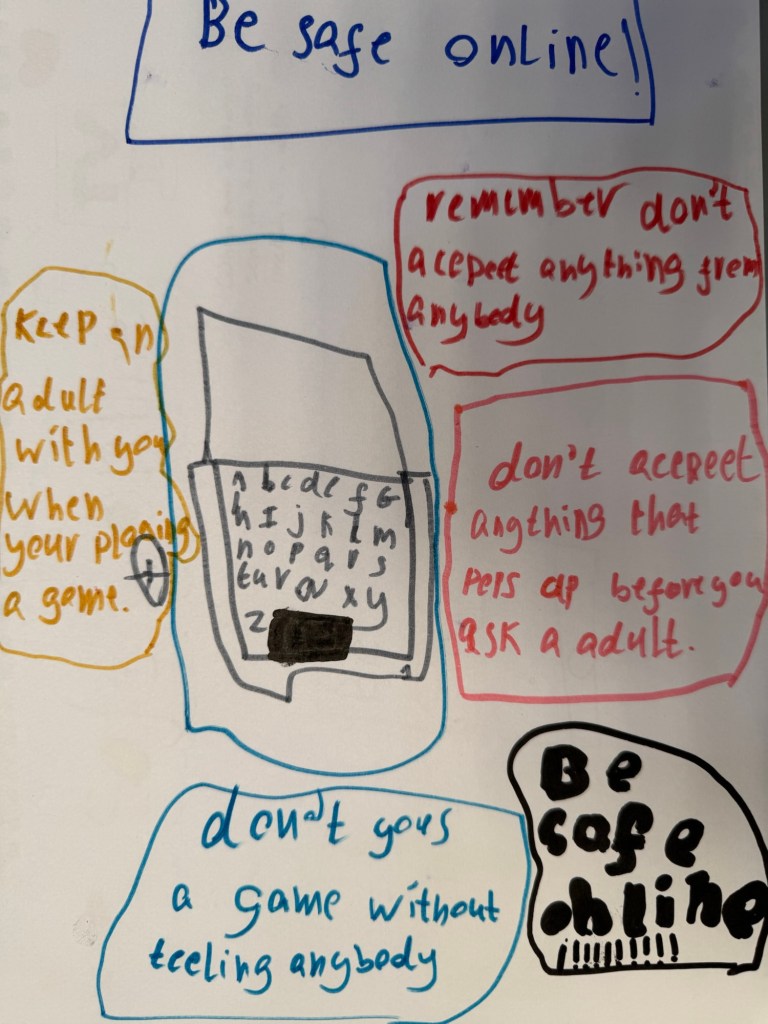 Be safe online!
remember don't
acepeet anything from
anybody
keep an
adult
with you
when
your playing
a game.
a b c d e f G
h I j k l m
n o p q r s
t u v w x y
z
don't acepeet
angthing that
pers up before you
ask a adult.
don't yous
a game without
teeling anybody
Be
safe
online
!!!!!!!!!!